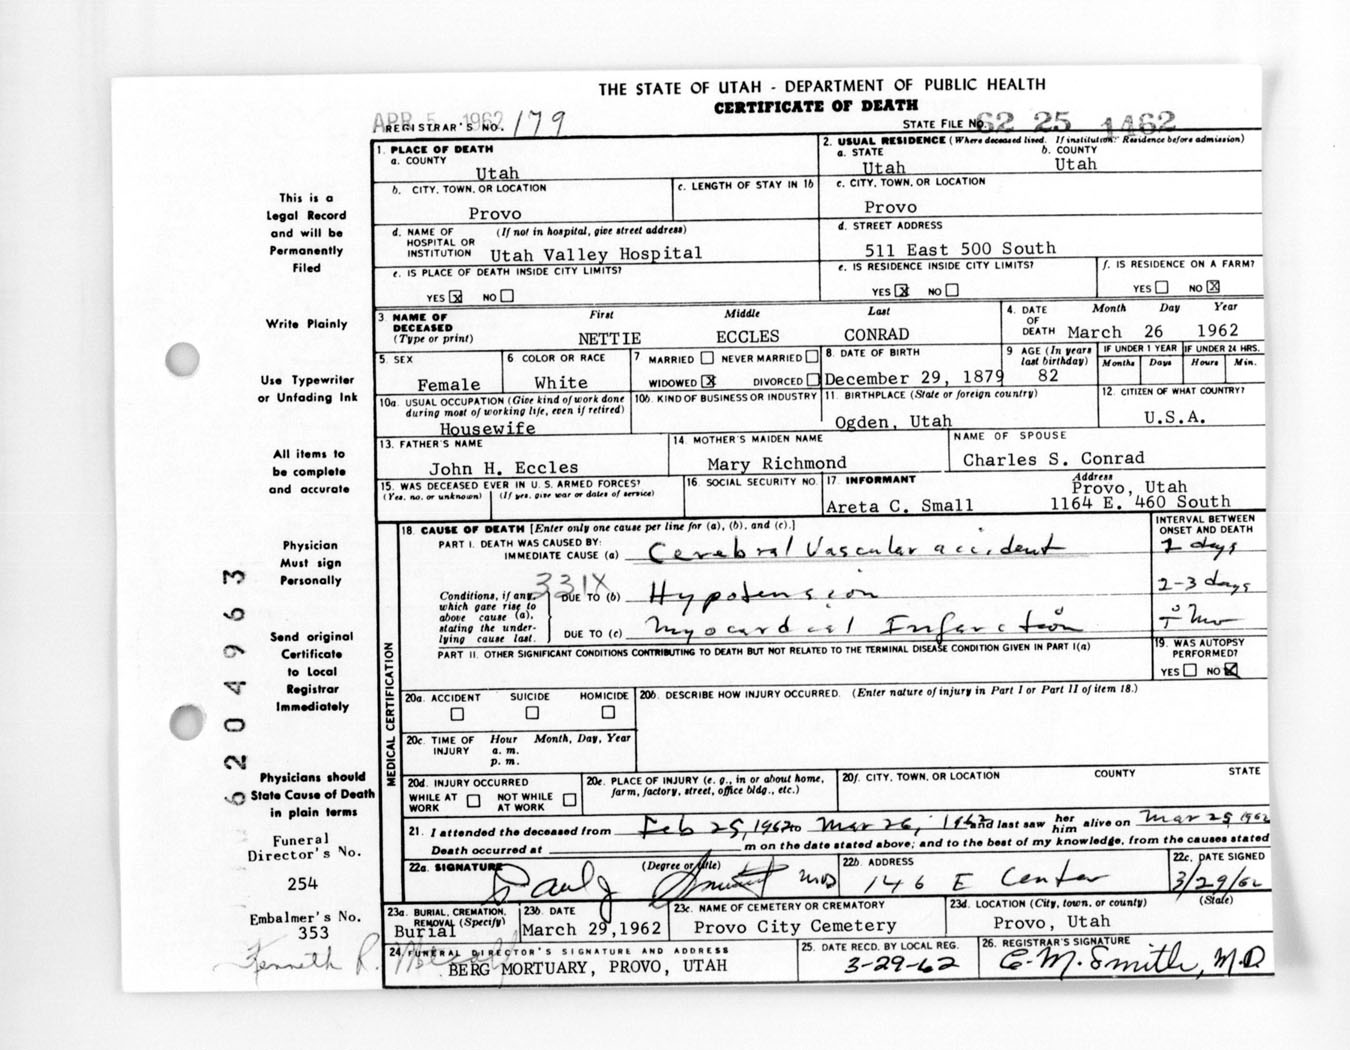 THE STATE OF UTAH - DEPARTMENT OF PUBLIC HEALTH
CERTIFICATE OF DEATH
APR 5 1962
REGISTRAR'S NO. 179
STATE FILE NO. 62 25 1462
1. PLACE OF DEATH
a. COUNTY
Utah
2. USUAL RESIDENCE (Where deceased lived. If institution: Residence before admission)
a. STATE b. COUNTY
Utah Utah
b. CITY, TOWN, OR LOCATION
Provo
c. LENGTH OF STAY IN 1b
c. CITY, TOWN, OR LOCATION
Provo
d. NAME OF HOSPITAL OR INSTITUTION (If not in hospital, give street address)
Utah Valley Hospital
d. STREET ADDRESS
511 East 500 South
e. IS PLACE OF DEATH INSIDE CITY LIMITS?
YES X NO
e. IS RESIDENCE INSIDE CITY LIMITS?
YES X NO
f. IS RESIDENCE ON A FARM?
YES NO X
3. NAME OF DECEASED (Type or print)
First Middle Last
NETTIE ECCLES CONRAD
4. DATE OF DEATH Month Day Year
March 26 1962
5. SEX
Female
6 COLOR OR RACE
White
7 MARRIED NEVER MARRIED
WIDOWED X DIVORCED
8. DATE OF BIRTH
December 29, 1879
9 AGE (In years last birthday)
82
IF UNDER 1 YEAR IF UNDER 24 HRS.
Months Days Hours Min.
10a. USUAL OCCUPATION (Give kind of work done during most of working life, even if retired)
Housewife
10b. KIND OF BUSINESS OR INDUSTRY
11. BIRTHPLACE (State or foreign country)
Ogden, Utah
12. CITIZEN OF WHAT COUNTRY?
U.S.A.
13. FATHER'S NAME
John H. Eccles
14. MOTHER'S MAIDEN NAME
Mary Richmond
NAME OF SPOUSE
Charles S. Conrad
15. WAS DECEASED EVER IN U.S. ARMED FORCES?
(Yes, no, or unknown) (If yes, give war or dates of service)
16. SOCIAL SECURITY NO.
17. INFORMANT Address
Areta C. Small
Provo, Utah
1164 E. 460 South
18. CAUSE OF DEATH [Enter only one cause per line for (a), (b), and (c).]
INTERVAL BETWEEN ONSET AND DEATH
PART I. DEATH WAS CAUSED BY:
IMMEDIATE CAUSE (a) Cerebral Vascular accident
2 days
331X
Conditions, if any, which gave rise to above cause (a), stating the underlying cause last.
DUE TO (b) Hypotension
2-3 days
DUE TO (c) Myocardial Infarction
PART II. OTHER SIGNIFICANT CONDITIONS CONTRIBUTING TO DEATH BUT NOT RELATED TO THE TERMINAL DISEASE CONDITION GIVEN IN PART I(a)
19. WAS AUTOPSY PERFORMED?
YES NO X
MEDICAL CERTIFICATION
20a. ACCIDENT SUICIDE HOMICIDE
20b. DESCRIBE HOW INJURY OCCURRED. (Enter nature of injury in Part I or Part II of item 18.)
20c. TIME OF INJURY Hour Month, Day, Year
a. m.
p. m.
20d. INJURY OCCURRED
WHILE AT WORK NOT WHILE AT WORK
20e. PLACE OF INJURY (e. g., in or about home, farm, factory, street, office bldg., etc.)
20f. CITY, TOWN, OR LOCATION COUNTY STATE
21. I attended the deceased from Feb 25, 1962 to Mar 26, 1962 and last saw her him alive on Mar 25 1962
Death occurred at m on the date stated above; and to the best of my knowledge, from the causes stated
22a. SIGNATURE (Degree or title)
Paul J MD
22b. ADDRESS
146 E Center
22c. DATE SIGNED
3/29/62
23a. BURIAL, CREMATION, REMOVAL (Specify)
Burial
23b. DATE
March 29,1962
23c. NAME OF CEMETERY OR CREMATORY
Provo City Cemetery
23d. LOCATION (City, town, or county) (State)
Provo, Utah
24. FUNERAL DIRECTOR'S SIGNATURE AND ADDRESS
BERG MORTUARY, PROVO, UTAH
25. DATE RECD. BY LOCAL REG.
3-29-62
26. REGISTRAR'S SIGNATURE
C. M. Smith, M.D.
This is a
Legal Record
and will be
Permanently
Filed
Write Plainly
Use Typewriter
or Unfading Ink
All items to
be complete
and accurate
Physician
Must sign
Personally
Send original
Certificate
to Local
Registrar
Immediately
Physicians should
State Cause of Death
in plain terms
Funeral
Director's No.
254
Embalmer's No.
353
Kenneth R.
6204963